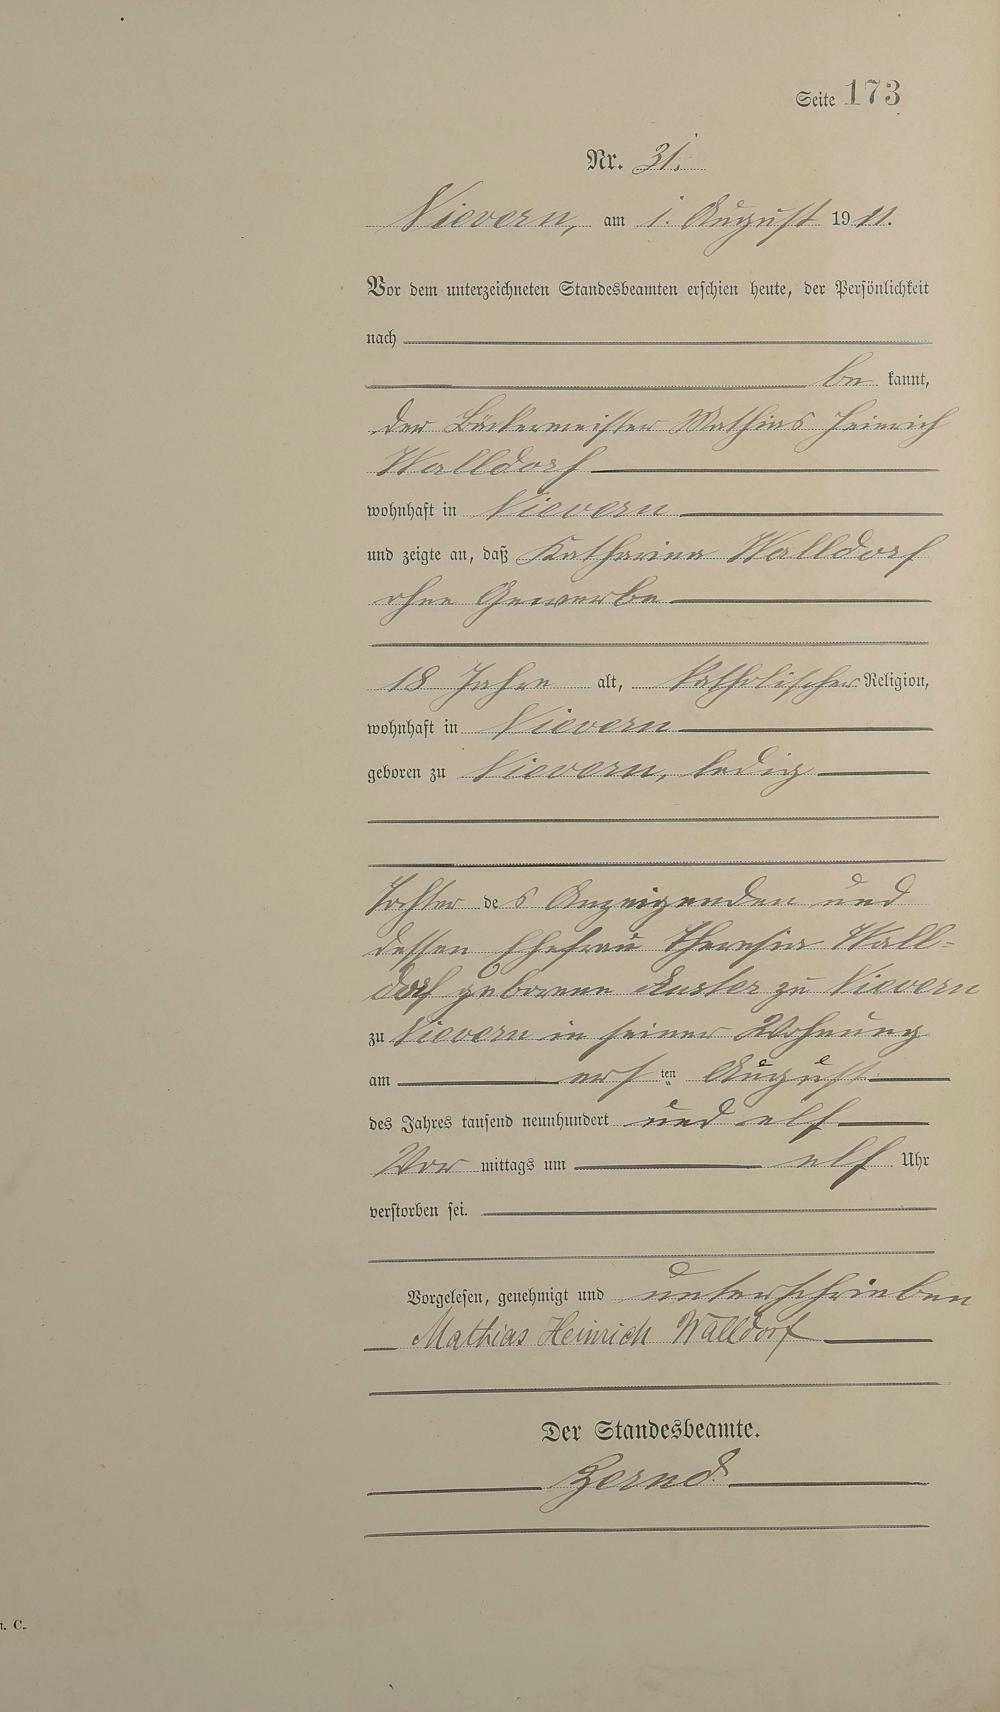 Seite 173
Nr. 31.
Nievern, am 1. August 1911.
Vor dem unterzeichneten Standesbeamten erschien heute, der Persönlichkeit
nach
be kannt,
der Bäckermeister Mathias Heinrich
Walldorf
wohnhaft in Nievern
und zeigte an, daß Katharina Walldorf
ohne Gewerbe
18 Jahre alt, katholischer Religion,
wohnhaft in Nievern
geboren zu Nievern, ledig
Tochter des Anzeigenden und
dessen Ehefrau Theresia Wall-
dorf geborene zu Nievern
zu Nievern in seiner Wohnung
am ersten August
des Jahres tausend neunhundert und elf
Vor mittags um elf Uhr
verstorben sei.
Vorgelesen, genehmigt und unterschrieben
Mathias Heinrich Walldorf
Der Standesbeamte.
. C.